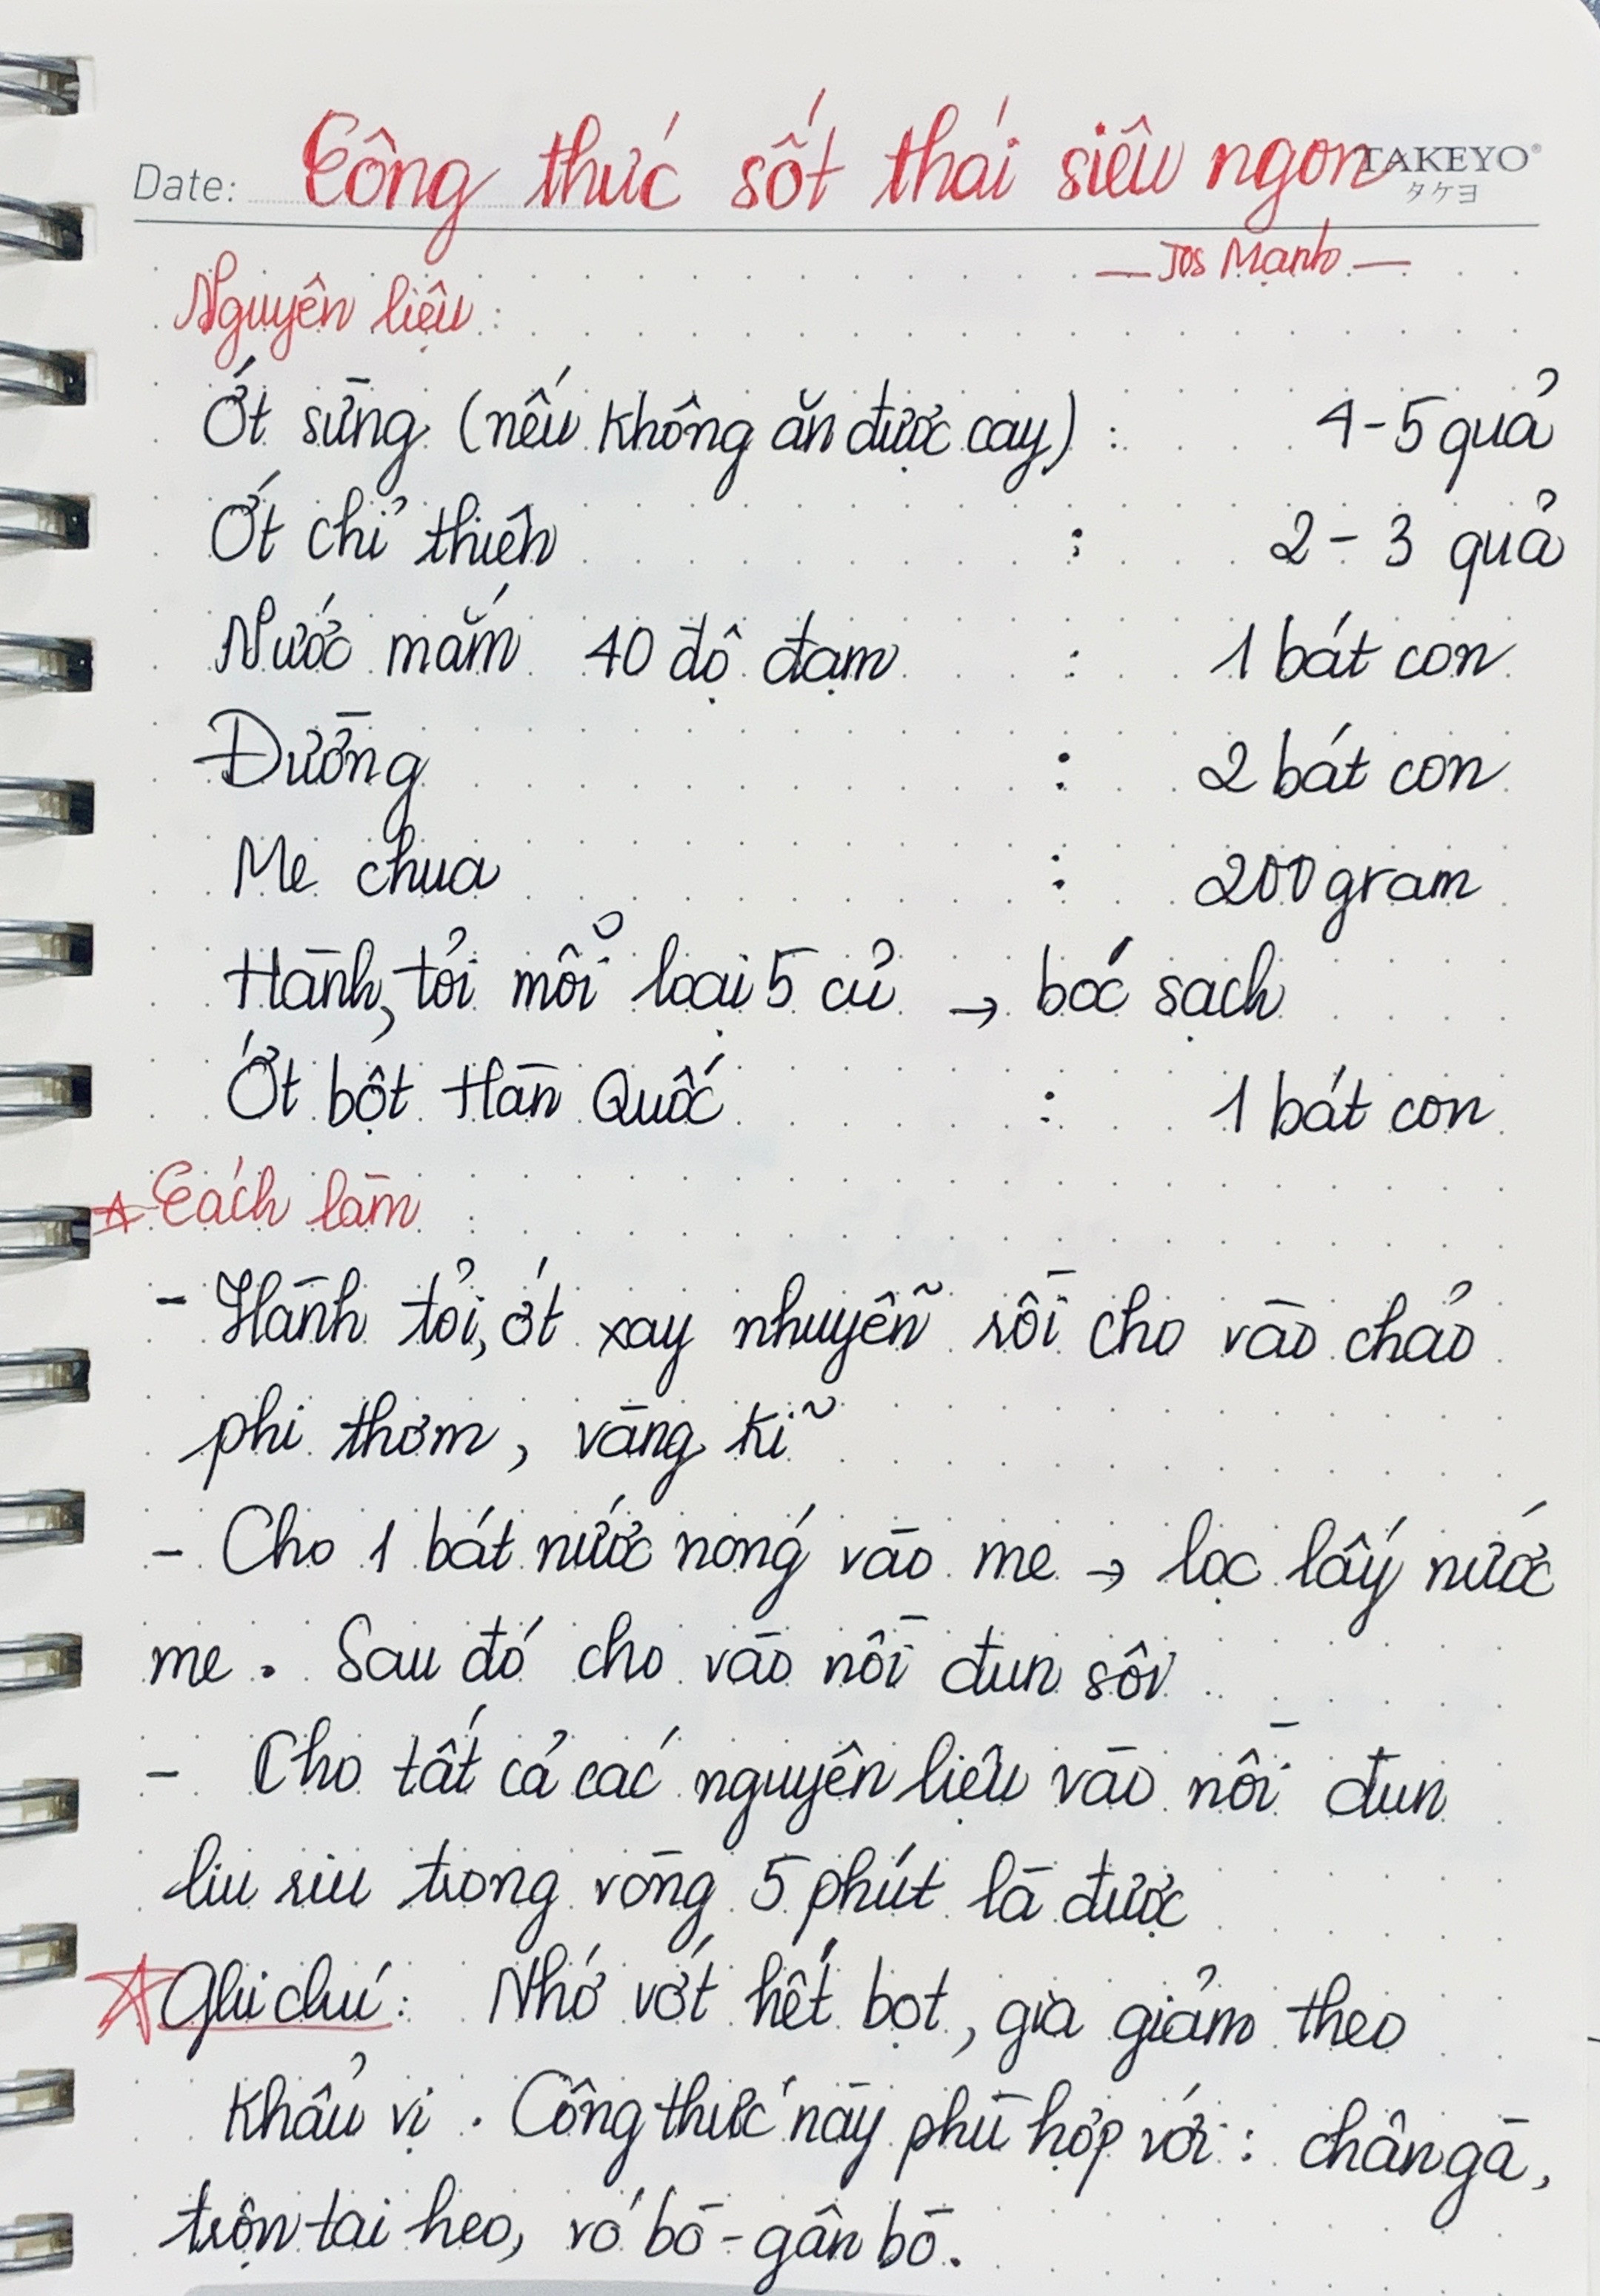 Date: Công thức sốt thái siêu ngon TAKEYO®
タケヨ
— Jos Mạnh —
Nguyên liệu :
Ớt sừng (nếu không ăn được cay) : 4-5 quả
Ớt chỉ thiên : 2 - 3 quả
Nước mắm 40 độ đạm : 1 bát con
Đường : 2 bát con
Me chua : 200 gram
Hành, tỏi mỗi loại 5 củ → bóc sạch
Ớt bột Hàn Quốc : 1 bát con
☆ Cách làm :
- Hành tỏi, ớt xay nhuyễn rồi cho vào chảo
phi thơm, vàng kĩ
- Cho 1 bát nước nóng vào me → lọc lấy nước
me. Sau đó cho vào nồi đun sôi
- Cho tất cả các nguyên liệu vào nồi đun
liu riu trong vòng 5 phút là được
☆ Ghi chú : Nhớ vớt hết bọt, gia giảm theo
khẩu vị. Công thức này phù hợp với : chân gà,
trộn tai heo, vó bò - gân bò.